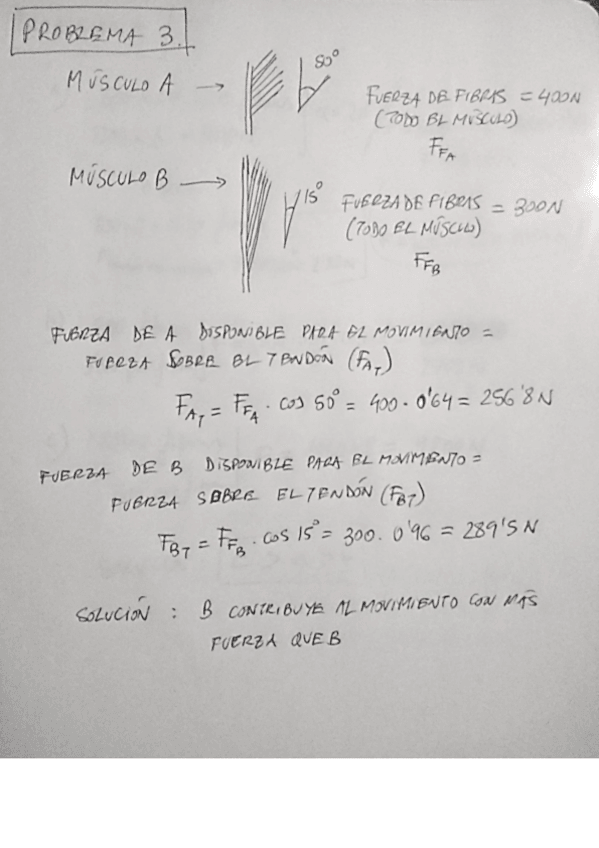 PROBLEMA 3.
MÚSCULO A → 50°
FUERZA DE FIBRAS = 400N
(TODO EL MÚSCULO)
F_FA
MÚSCULO B → 15°
FUERZA DE FIBRAS = 300N
(TODO EL MÚSCULO)
F_FB
FUERZA DE A DISPONIBLE PARA EL MOVIMIENTO =
FUERZA SOBRE EL TENDÓN (F_AT)
F_AT = F_FA · cos 50° = 400 · 0'64 = 256'8 N
FUERZA DE B DISPONIBLE PARA EL MOVIMIENTO =
FUERZA SOBRE EL TENDÓN (F_BT)
F_BT = F_FB · cos 15° = 300. 0'96 = 289'5 N
SOLUCIÓN : B CONTRIBUYE AL MOVIMIENTO CON MÁS
FUERZA QUE B